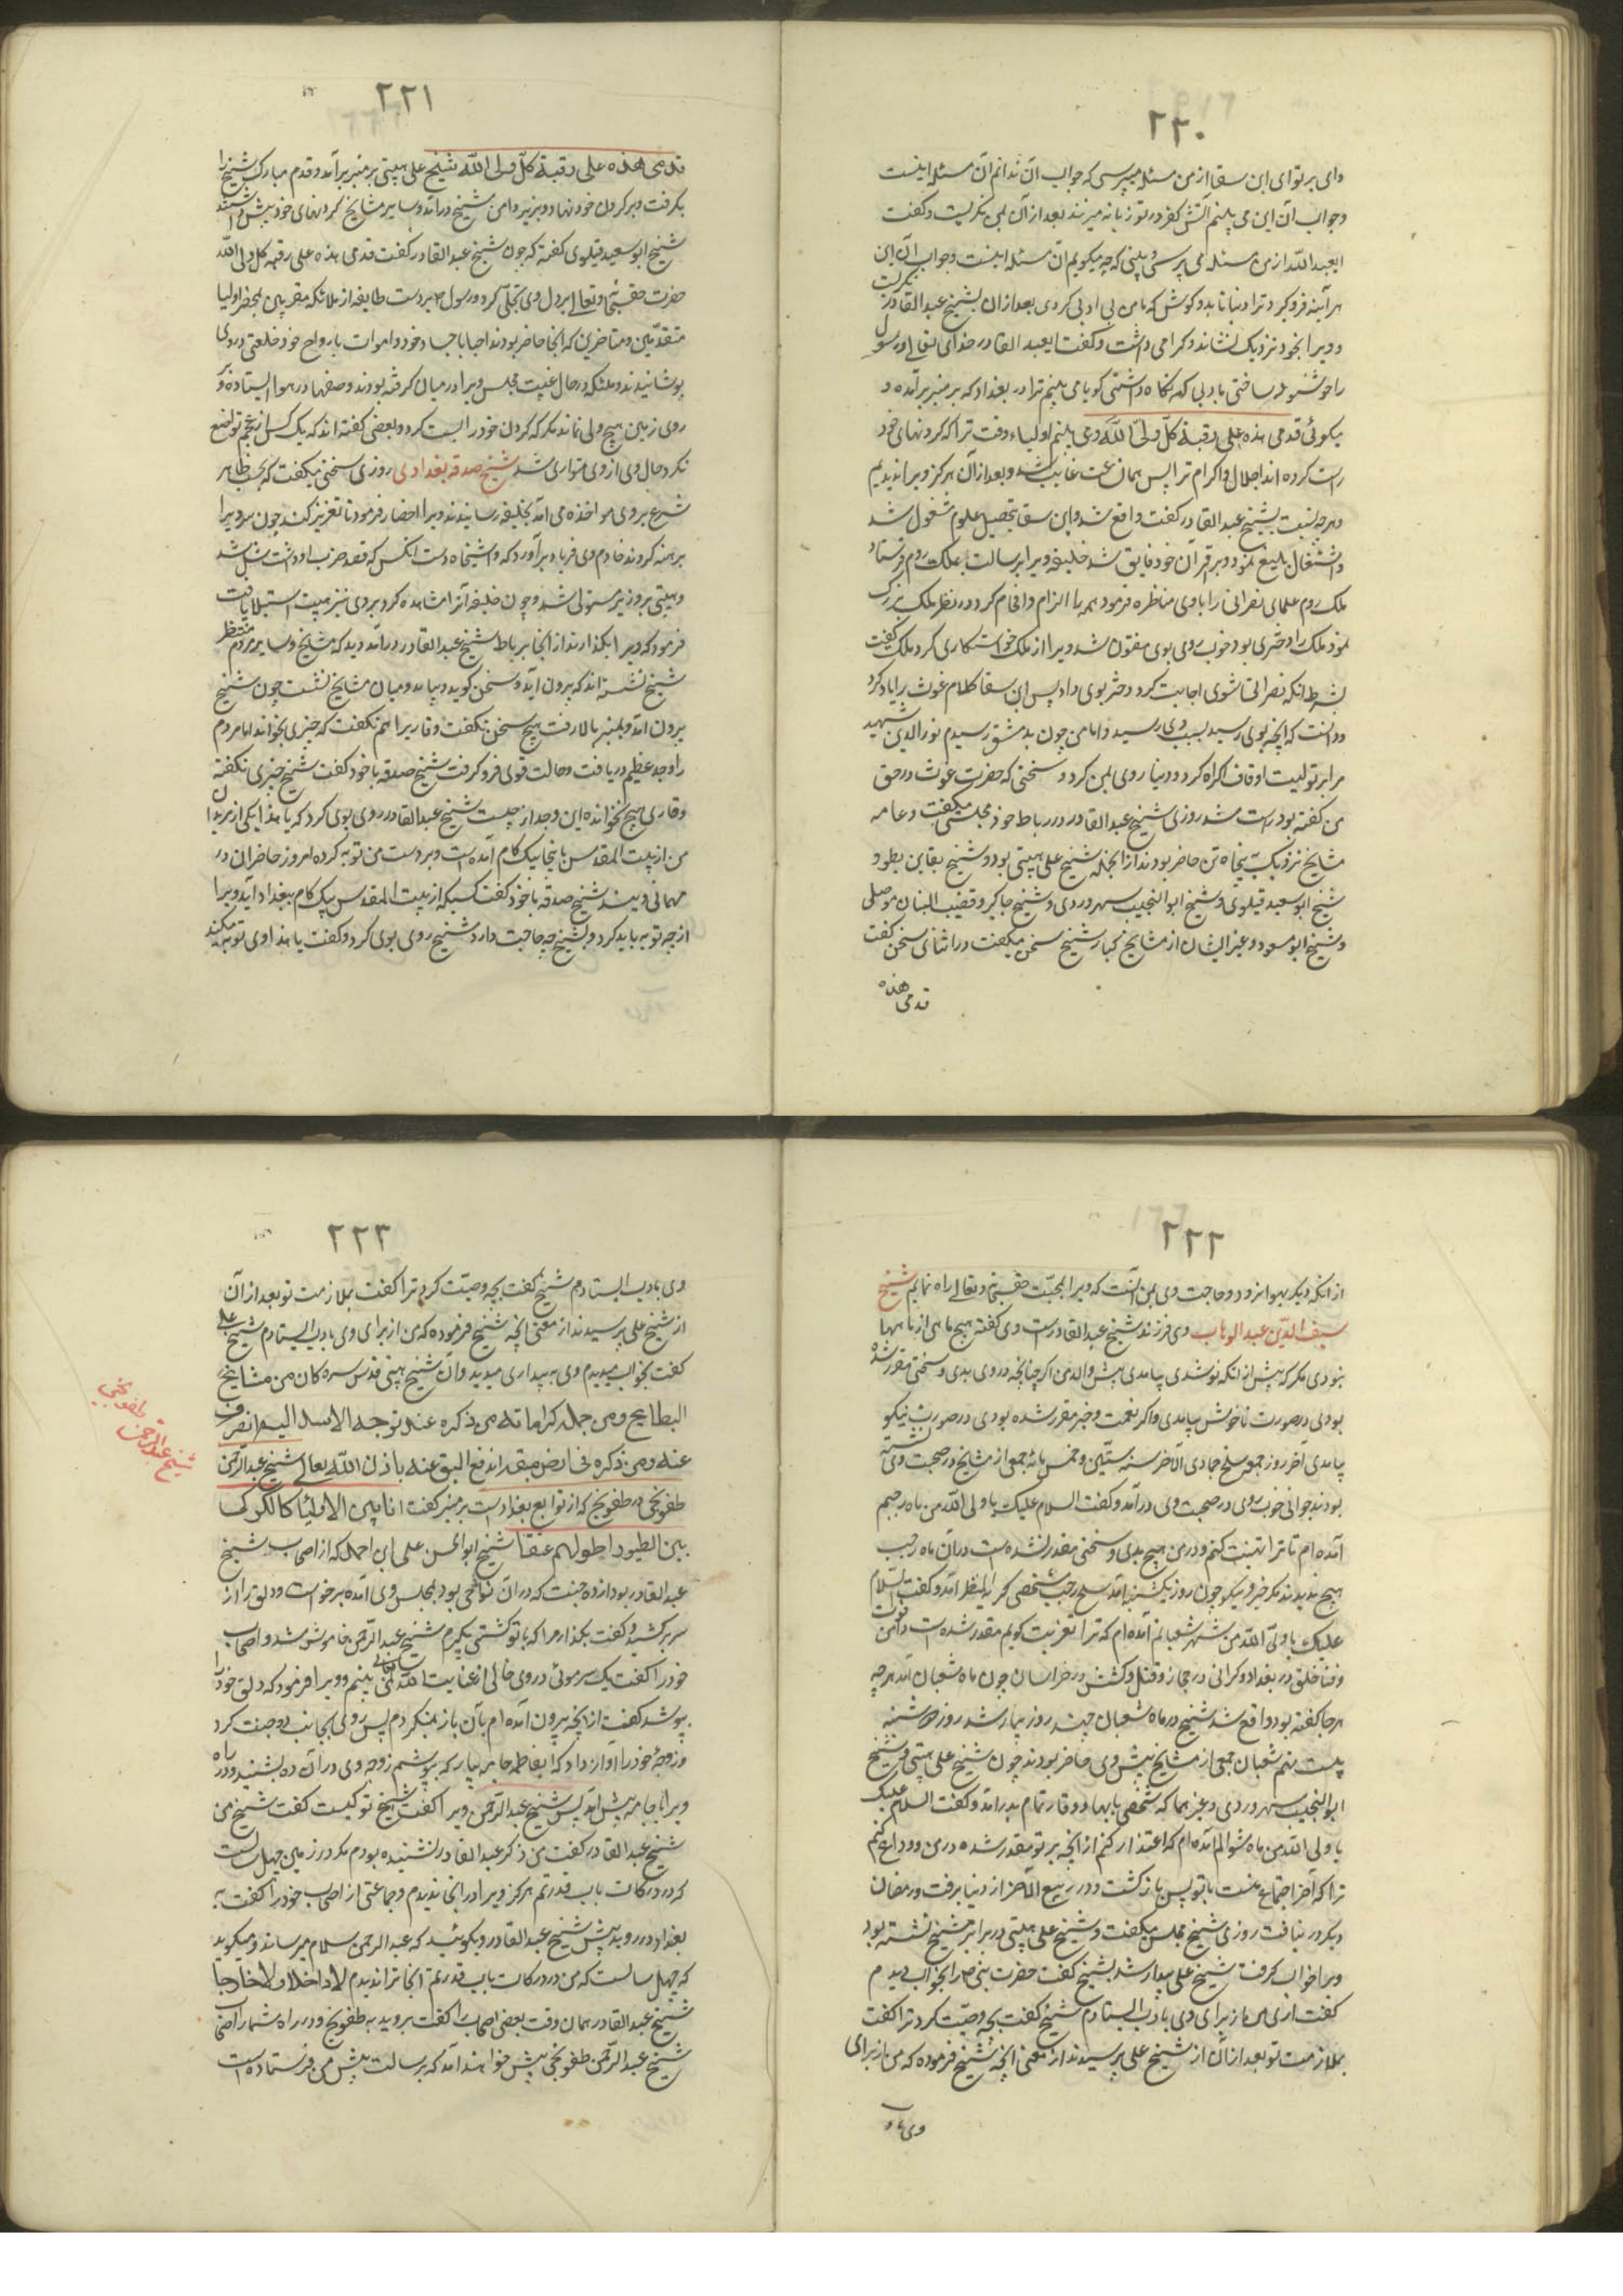 ۲۲۰
وای بر تو ای ابن سقا از من مسئله میپرسی که جواب آن ندانم آن مسئله اینست
و جواب آن این می بینم آتش کفر در تو زبانه میزند بعد از آن بمن نگریست و گفت
ای عبد الله از من مسئله می پرسی و بینی که چه میگویم آن مسئله اینست و جواب آن این
هر آینه فرو گیرد ترا دنیا تا بدو گوش که با من بی ادبی کردی بعد از آن بشیخ عبد القادر نگریست
و ویرا بخود نزدیک نشاند و گرامی داشت و گفت ای عبد القادر خدای تعالی و رسول
را خوشنود ساختی بادبی که نگاه داشتی گویا می بینم ترا در بغداد که بر منبر برآمده و
میگوئی قدمی هذه علی رقبة کل ولی الله و می بینم اولیاء وقت ترا که گردنهای خود
پست کرده اند اجلال و اکرام ترا پس همان ساعت غایب شد و بعد از آن هرگز ویرا ندیدیم
و هرچه نسبت بشیخ عبد القادر گفت واقع شد و ابن سقا بتحصیل علوم مشغول شد
و اشتغال بلیغ نمود و بر اقران خود فایق شد خلیفه ویرا برسالت بملک روم فرستاد
ملک روم علمای نصرانی را با وی مناظره فرمود همه را الزام و افحام کرد و در نظر ملک بزرگ
نمود ملک را دختری بود خوب روی بوی مفتون شد ویرا از ملک خواستگاری کرد ملک گفت
بشرط آنکه نصرانی شوی اجابت کرد دختر بوی داد پس ابن سقا کلام غوث را یاد کرد
و دانست که آنچه بوی رسید بسبب وی رسید و اما من چون بدمشق رسیدم نور الدین شهید
مرا بر تولیت اوقاف اکراه کرد و دنیا روی بمن کرد و سخنی که حضرت غوث در حق
من گفته بود راست شد روزی شیخ عبد القادر در رباط خود مجلس میگفت و عامه
مشایخ نزدیک به پنجاه تن حاضر بودند از آنجمله شیخ علی هیتی بود و شیخ بقا بن بطو و
شیخ ابو سعید قیلوی و شیخ ابو النجیب سهروردی و شیخ جاگیر و قضیب البان موصلی
و شیخ ابو مسعود و غیر ایشان از مشایخ کبار شیخ سخن میگفت در اثنای سخن گفت
قدمی هذه
۲۲۱
قدمی هذه علی رقبة کل ولی الله شیخ علی هیتی بر منبر برآمد و قدم مبارک شیخ را
بگرفت و بر گردن خود نهاد و بزیر دامن شیخ درآمد و سایر مشایخ گردنهای خود پیش داشتند
شیخ ابو سعید قیلوی گفته که چون شیخ عبد القادر گفت قدمی هذه علی رقبة کل ولی الله
حضرت حق سبحانه و تعالی بر دل وی تجلی کرد و رسول بر دست طایفه از ملائکه مقربین بمحضر اولیا
متقدمین و متاخرین که آنجا حاضر بودند احیا باجساد خود و اموات بارواح خود خلعتی در وی
پوشانیدند و ملئکه و رجال غیب مجلس ویرا در میان گرفته بودند و صفها در هوا ایستاده و بر
روی زمین هیچ ولی نماند مگر که گردن خود را پست کرد و بعضی گفته اند که یک کس از عجم تواضع
نکرد حال وی از وی متواری شد شیخ صدقه بغدادی روزی سخنی میگفت که بحسب ظاهر
شرع بر وی مواخذه می آمد بخلیفه رسانیدند ویرا احضار فرمود تا تعزیر کنند چون سر ویرا
برهنه کردند خادم وی فریاد برآورد که واشیخاه دست آنکس که قصد ضرب او داشت شل شد
و هیبتی بر وزیر مستولی شد و چون خلیفه آنرا مشاهده کرد بر وی نیز هیبت استیلا یافت
فرمود که ویرا بگذارند از آنجا برباط شیخ عبد القادر درآمد دید که مشایخ و سایر مردم منتظر
شیخ نشسته اند که بیرون آید و سخن گوید و بیامد و میان مشایخ نشست چون شیخ
بیرون آمد و بمنبر بالا رفت هیچ سخن نگفت و قاری را هم نگفت که چیزی بخواند اما مردم
را وجد عظیم دریافت و حالت قوی فرو گرفت شیخ صدقه با خود گفت شیخ چیزی نگفته
و قاری هیچ نخوانده این وجد از چیست شیخ عبد القادر روی بوی کرد که یا هذا یکی از مریدان
من از بیت المقدس باینجا بیک گام آمده است و بر دست من توبه کرده امروز حاضران در
مهمانی ویند شیخ صدقه با خود گفت کسیکه از بیت المقدس بیک گام ببغداد آید ویرا
از چه توبه باید کرد و بشیخ چه حاجت دارد شیخ روی بوی کرد و گفت یا هذا وی توبه میکند
۲۲۲
از آنکه دیگر بهوا نرود و حاجت وی بمن آنست که ویرا بمحبت حق سبحانه و تعالی راه نمایم شیخ
سیف الدین عبد الوهاب وی فرزند شیخ عبد القادر است وی گفته هیچ ماهی از ماهها
نبودی مگر که پیش از آنکه نو شدی بیامدی پیش والد من اگر چنانچه در وی بدی و سختی مقدر شده
بودی در صورت ناخوش بیامدی و اگر نعمت و خیر مقرر شده بودی در صورت نیکو
بیامدی آخر روز جمعه سلخ جمادی الآخر سنه ستین و خمس مائه جمعی از مشایخ در صحبت وی نشسته
بودند جوانی خوب روی در صحبت وی درآمد و گفت السلام علیک یا ولی الله من ماه رجبم
آمده ام تا ترا تهنیت کنم و در من هیچ بدی و سختی مقدر نشده است در آن ماه رجب
هیچ ندیدند مگر خیر و نیکو چون روز یکشنبه آمد سلخ رجب شخصی کریه المنظر آمد و گفت السلام
علیک یا ولی الله من شهر شعبانم آمده ام که ترا تعزیت گویم مقدر شده است در من موت
و فنا خلق در بغداد و گرانی در حجاز و قتل و کشتن در خراسان چون ماه شعبان آمد هرچه
هر جا گفته بود واقع شد شیخ در ماه شعبان چند روز بیمار شد روز دوشنبه
بیست نهم شعبان جمعی از مشایخ پیش وی حاضر بودند چون شیخ علی هیتی و شیخ
ابو النجیب سهروردی و غیرهما که شخصی بابها و وقار تمام بدرآمد و گفت السلام علیک
یا ولی الله من ماه شوالم آمده ام که اعتذار کنم از آنچه بر تو مقدر شده در من و وداع کنم
ترا که آخر اجتماع منست با تو پس بازگشت و در ربیع الآخر از دنیا برفت و رمضان
دیگر در نیافت روزی شیخ مجلس میگفت و شیخ علی هیتی در برابر شیخ نشسته بود
ویرا خواب گرفت شیخ علی بیدار شد بشیخ گفت حضرت نبی را بخواب دیدم
گفت آری من از برای وی بادب ایستادم شیخ گفت بچه وصیت کرد ترا گفت
بملازمت تو بعد از آن از شیخ علی پرسیدند از معنی آنچه شیخ فرموده که من از برای
وی بادب
۲۲۳
وی بادب ایستادم شیخ گفت بچه وصیت کرد ترا گفت بملازمت تو بعد از آن
از شیخ علی پرسیدند از معنی آنچه شیخ فرموده که من از برای وی بادب ایستادم شیخ علی
گفت بخواب میدیدم وی به بیداری میدید و آن شیخ هیتی قدس سره کان من مشایخ
البطایح ومن جمله کراماته من ذکره عند توجه الاسد الیه انصرف
عنه ومن ذکره فی ارض مبقه اندفع البق عنه باذن الله تعالی شیخ عبد الرحمن
طفونجی در طفونج که از توابع بغداد است بر منبر گفت انا بین الاولیا کالکرکی
بین الطیور اطولهم عنقا شیخ ابو الحسن علی ابن احمد که از اصحاب شیخ
عبد القادر بود از ده جنت که در آن نواحی بود بمجلس وی آمده برخواست و دلق را از
سر برکشید و گفت بگذار مرا که با تو کشتی بگیرم شیخ عبد الرحمن خاموش شد و اصحاب
خود را گفت یک سر موئی در وی خالی از عنایت الله تعالی نمی بینم و ویرا فرمود که دلق خود را
بپوشد گفت از آنچه بیرون آمده ام بآن باز نمیگردم پس روی بجانب ده جنت کرد
و زوجهٔ خود را آواز داد که ای فاطمه جامه بیار که بپوشم زوجه وی در آن ده بشنید و در راه
ویرا جامه پیش آمد پس شیخ عبد الرحمن ویرا گفت شیخ تو کیست گفت شیخ من
شیخ عبد القادر گفت من ذکر عبد القادر نشنیده بودم مگر در زمین چهل سالست
که در درکات باب قدرتم هرگز ویرا در آنجا ندیدم و جماعتی از اصحاب خود را گفت به
بغداد در روید پیش شیخ عبد القادر و بگوئید که عبد الرحمن سلام میرساند و میگوید
که چهل سالست که من در درکات باب قدرتم آنجا ترا ندیدم لا داخلا ولا خارجا
شیخ عبد القادر همان وقت بعضی اصحاب را گفت بروید به طفونج و در راه شما را اصحاب
شیخ عبد الرحمن طفونجی پیش خواهند آمد که برسالت پیش من فرستاده است
شیخ عبد الرحمن طفونجی